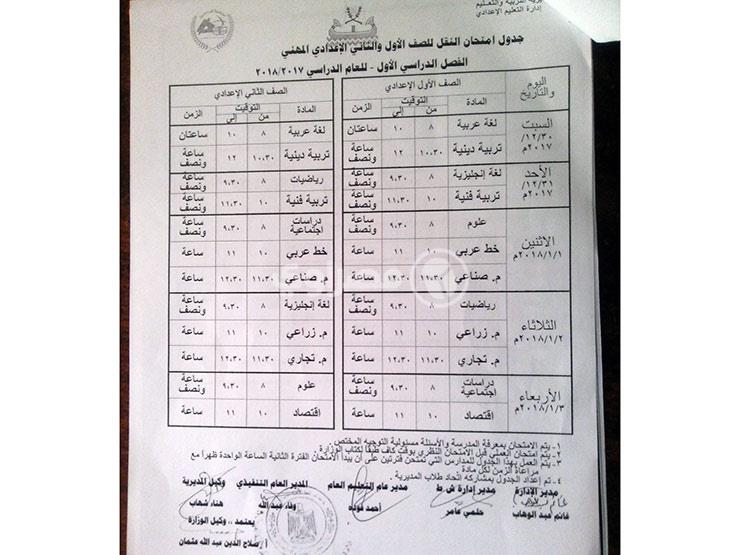 إدارة التعليم الإعدادي
جدول امتحان النقل للصف الأول والثاني الإعدادي المهني
الفصل الدراسي الأول - للعام الدراسي ٢٠١٨/٢٠١٧
اليوم والتاريخ | الصف الأول الإعدادي | الصف الثاني الإعدادي
المادة | التوقيت من | إلى | الزمن | المادة | التوقيت من | إلى | الزمن
السبت ١٢/٣٠/٢٠١٧م
لغة عربية | ٨ | ١٠ | ساعتان | لغة عربية | ٨ | ١٠ | ساعتان
تربية دينية | ١٠.٣٠ | ١٢ | ساعة ونصف | تربية دينية | ١٠.٣٠ | ١٢ | ساعة ونصف
الأحد ١٢/٣١/٢٠١٧م
لغة إنجليزية | ٨ | ٩.٣٠ | ساعة ونصف | رياضيات | ٨ | ٩.٣٠ | ساعة ونصف
تربية فنية | ١٠ | ١١.٣٠ | ساعة ونصف | تربية فنية | ١٠ | ١١.٣٠ | ساعة ونصف
الاثنين ٢٠١٨/١/١م
علوم | ٨ | ٩.٣٠ | ساعة ونصف | دراسات اجتماعية | ٨ | ٩.٣٠ | ساعة ونصف
خط عربي | ١٠ | ١١ | ساعة | خط عربي | ١٠ | ١١ | ساعة
م. صناعي | ١١.٣٠ | ١٢.٣٠ | ساعة | م. صناعي | ١١.٣٠ | ١٢.٣٠ | ساعة
الثلاثاء ٢٠١٨/١/٢م
رياضيات | ٨ | ٩.٣٠ | ساعة ونصف | لغة إنجليزية | ٨ | ٩.٣٠ | ساعة ونصف
م. زراعي | ١٠ | ١١ | ساعة | م. زراعي | ١٠ | ١١ | ساعة
م. تجاري | ١١.٣٠ | ١٢.٣٠ | ساعة | م. تجاري | ١١.٣٠ | ١٢.٣٠ | ساعة
الأربعاء ٢٠١٨/١/٣م
دراسات اجتماعية | ٨ | ٩.٣٠ | ساعة ونصف | علوم | ٨ | ٩.٣٠ | ساعة ونصف
اقتصاد | ١٠ | ١١ | ساعة | اقتصاد | ١٠ | ١١ | ساعة
١ - يتم الامتحان بمعرفة المدرسة والأسئلة مسئولية التوجيه المختص.
٢ - يتم امتحان العملي قبل الامتحان النظري بوقت كاف طبقا لكتاب الوزارة
٣ - يتم العمل بهذا الجدول للمدارس التي تمتحن فترتين على أن يبدأ الامتحان الفترة الثانية الساعة الواحدة ظهراً مع
مراعاة الزمن لكل مادة.
٤ - تم إعداد الجدول بمشاركه اتحاد طلاب المديرية.
مدير الإدارة | مدير إدارة ش.ط | مدير عام التعليم العام | المدير العام التنفيذي | وكيل المديرية
غانم عبد الوهاب | حلمي عامر | أحمد فوده | وفاء عبد الله | هناء شهاب
يعتمد ،، وكيل الوزارة
أ/ صلاح الدين عبد الله عثمان